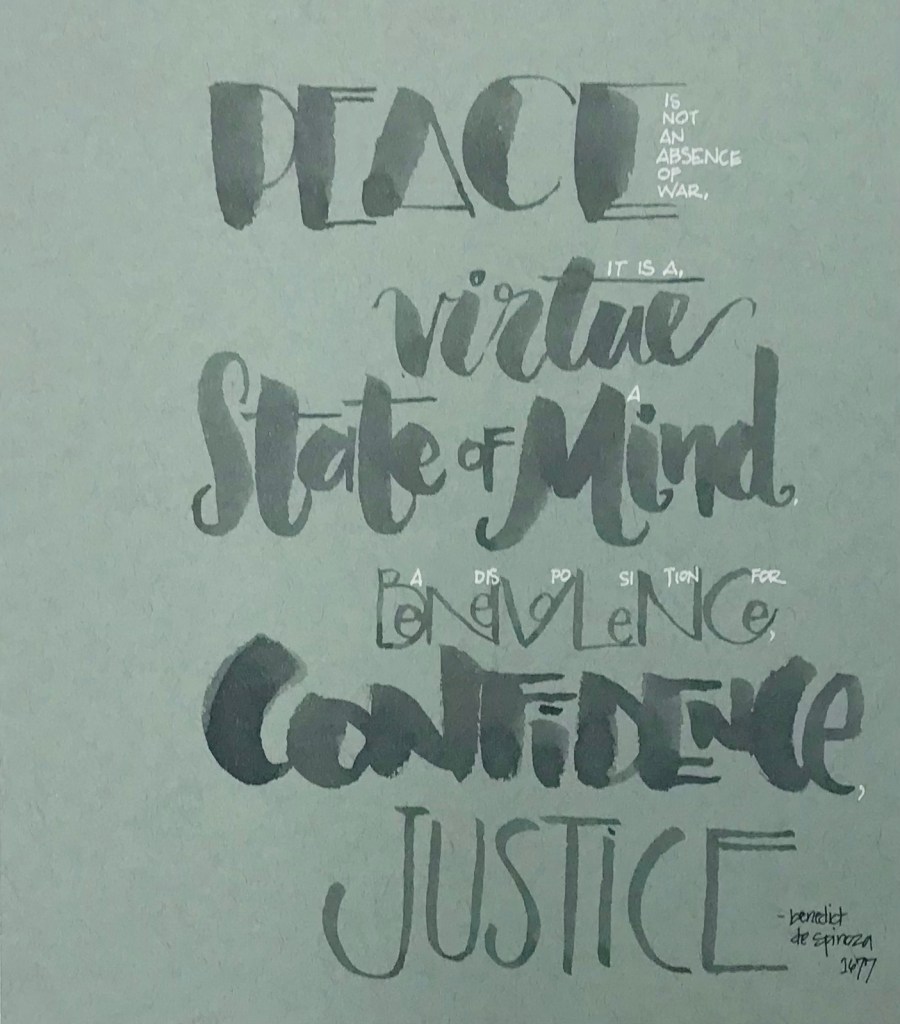 PEACE IS
NOT
AN
ABSENCE
OF
WAR,
IT IS A,
virtue
A
State of Mind,
A DISPOSITION FOR
BeNeVoLeNCe,
CONFiDENCe,
JUSTiCE
- benedict
de spinoza
1677